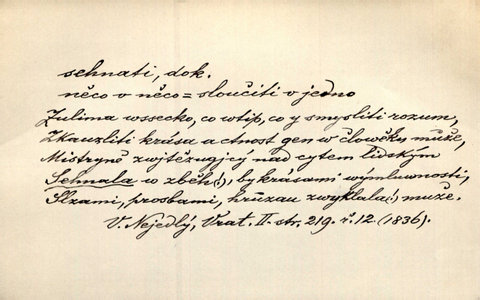 sehnati, dok.
něco v něco = sloučiti v jedno
Zulima wssecko, co wtip, co y smysliti rozum,
Zkauzliti krása a ctnost gen w člowěku může,
Mistryně zwjtězugjcý nad cytem lidským
Sehnala w zběh(!), by krásami wýmluwnosti,
Slzami, prosbami, hrůzau zwyklala(!) muže.
V. Nejedlý, Vrat. II. str. 219. ř. 12. (1836).